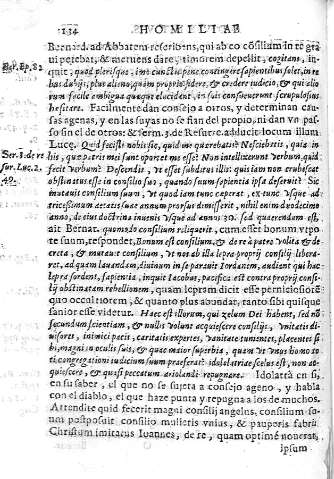 134 HOMILIAE
Bernard. ad Abbatem rescribens, qui ab eo consilium in re gra
ui petebat, & metuens dare, timorem depellit, cogitans, in-
Ber. Ep. 82
quit, quod plerisque, imò cunctis penè contingere sapientibus solet, in re
bus dubijs, plus alieno, quàm proprio fidere, & credere iudicio, & qui alio
rum facilè ambigua quæque elucidant, in suis consueuerunt scrupulosiùs
hesitare. Facilmente dan consejo a otros, y determinan cau
sas agenas, y en las suyas no se fian del propio, ni dan vn pas
so sin el de otros: & serm. 3. de Resurre. adducit locum illum
Ser. 3. de re
sur. Luc. 2.
49.
Lucæ. Quid fecistis nobis sic, quid me quærebatis? Nesciebatis, quia in
his, quæ patris mei sunt oportet me esse? Non intellexerunt verbum. quid
fecit verbum? Descendit, vt esset subditus illis: quis iam non erubescat
obstinatus esse in consilio suo, quando suum sapientia ipsa deseruit? Sic
mutauit consilium suum, vt quod iam tunc cæperat, ex tunc vsque ad
tricesimum ætatis suæ annum prorsus dimisserit, nihil enim duodecimo
anno, de eius doctrina inuenis vsque ad annum 30. sed quærendum est,
ait Bernar. quomodo consilium reliquerit, cum esset bonum vtpo
te suum, respondet, Bonum est consilium, & de re à patre volita & de-
creta, & mutauit consilium, vt nos ab illa lepra proprij consilij libera-
ret, ad quam lauandam, fluimus in se parauit Iordanem, audiant qui hac
lepra sordent, sapientia, inquit Iacobus, pacifica est contra proprij consi-
lij obstinatam rebellionem, quam lepram dicit esse perniciosiorē
quo occultiorem, & quanto plus abundat, tanto sibi quisque
sanior esse videtur. Hæc est illorum, qui zelum Dei habent, sed nō
secundum scientiam, & nullis volunt acquiescere consilijs, vnitatis di-
uisores, inimici pacis, caritatis expertes, vanitate tumentes, placentes si
bi, magni in oculis suis, & quæ maior superbia, quam vt vnus homo to
ti congregationi iudicium suum præferat? idololatriæ scelus est, non ac-
quiescere & quasi peccatum ariolandi repugnare. Idolatra en si,
en su saber, el que no se sujeta a consejo ageno, y habla
con el diablo, el que haze punta y repugna a los de muchos.
Attendite quid fecerit magni consilij angelus, consilium su-
um postposuit consilio mulieris vnius, & pauperis fabri.
Christum imitatus Ioannes, de re, quam optimè nouerat,
ipsum